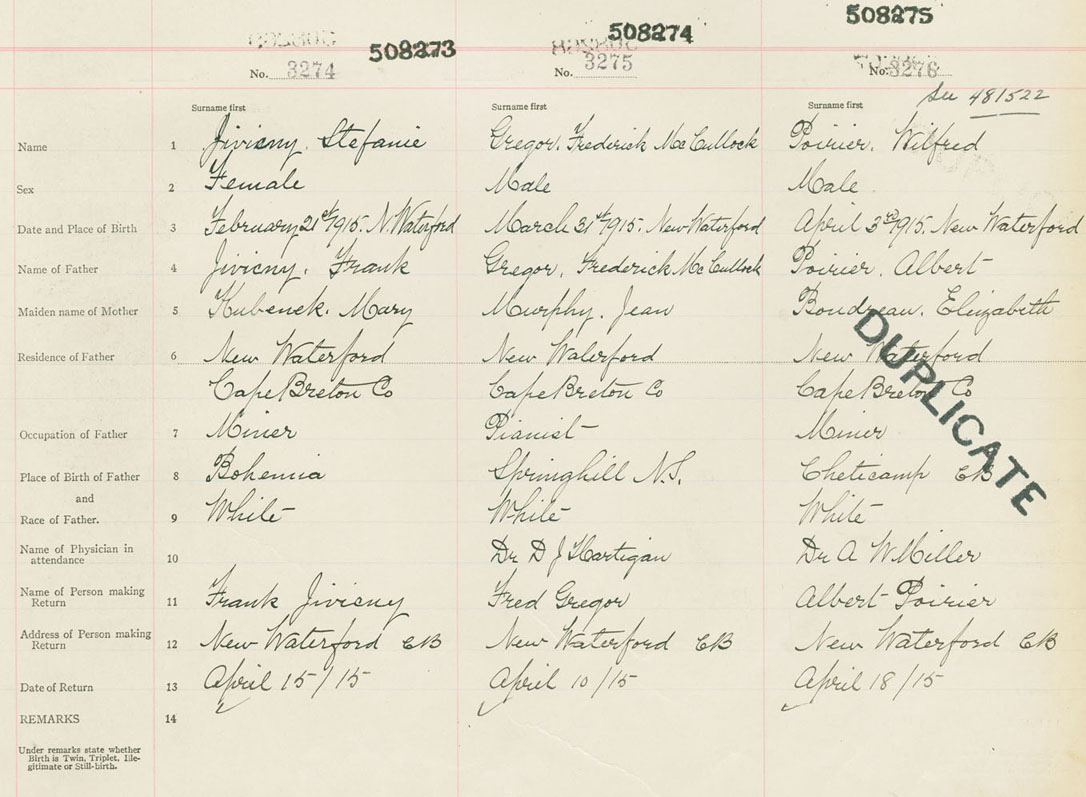 508273 508274 508275
No. 3274 No. 3275 No. 3276
See 481522
Surname first Surname first Surname first
Name 1 Jivisny. Stefanie Gregor. Frederick McCullock Poirier. Wilfred
Sex 2 Female Male Male
Date and Place of Birth 3 February 21st 1915. N. Waterford March 31st 1915. New Waterford April 3rd 1915. New Waterford
Name of Father 4 Jivisny. Frank Gregor. Frederick McCullock Poirier. Albert
Maiden name of Mother 5 Kubenek. Mary Murphy. Jean Boudreau. Elizabeth
Residence of Father 6 New Waterford New Waterford New Waterford
Cape Breton Co Cape Breton Co Cape Breton Co
DUPLICATE
Occupation of Father 7 Miner Pianist Miner
Place of Birth of Father 8 Bohemia Springhill N.S. Cheticamp CB
and
Race of Father. 9 White White White
Name of Physician in
attendance 10 Dr D J Hartigan Dr A W Miller
Name of Person making
Return 11 Frank Jivisny Fred Gregor Albert Poirier
Address of Person making
Return 12 New Waterford CB New Waterford CB New Waterford CB
Date of Return 13 April 15/15 April 10/15 April 18/15
REMARKS 14
Under remarks state whether
Birth is Twin, Triplet, Ille-
gitimate or Still-birth.